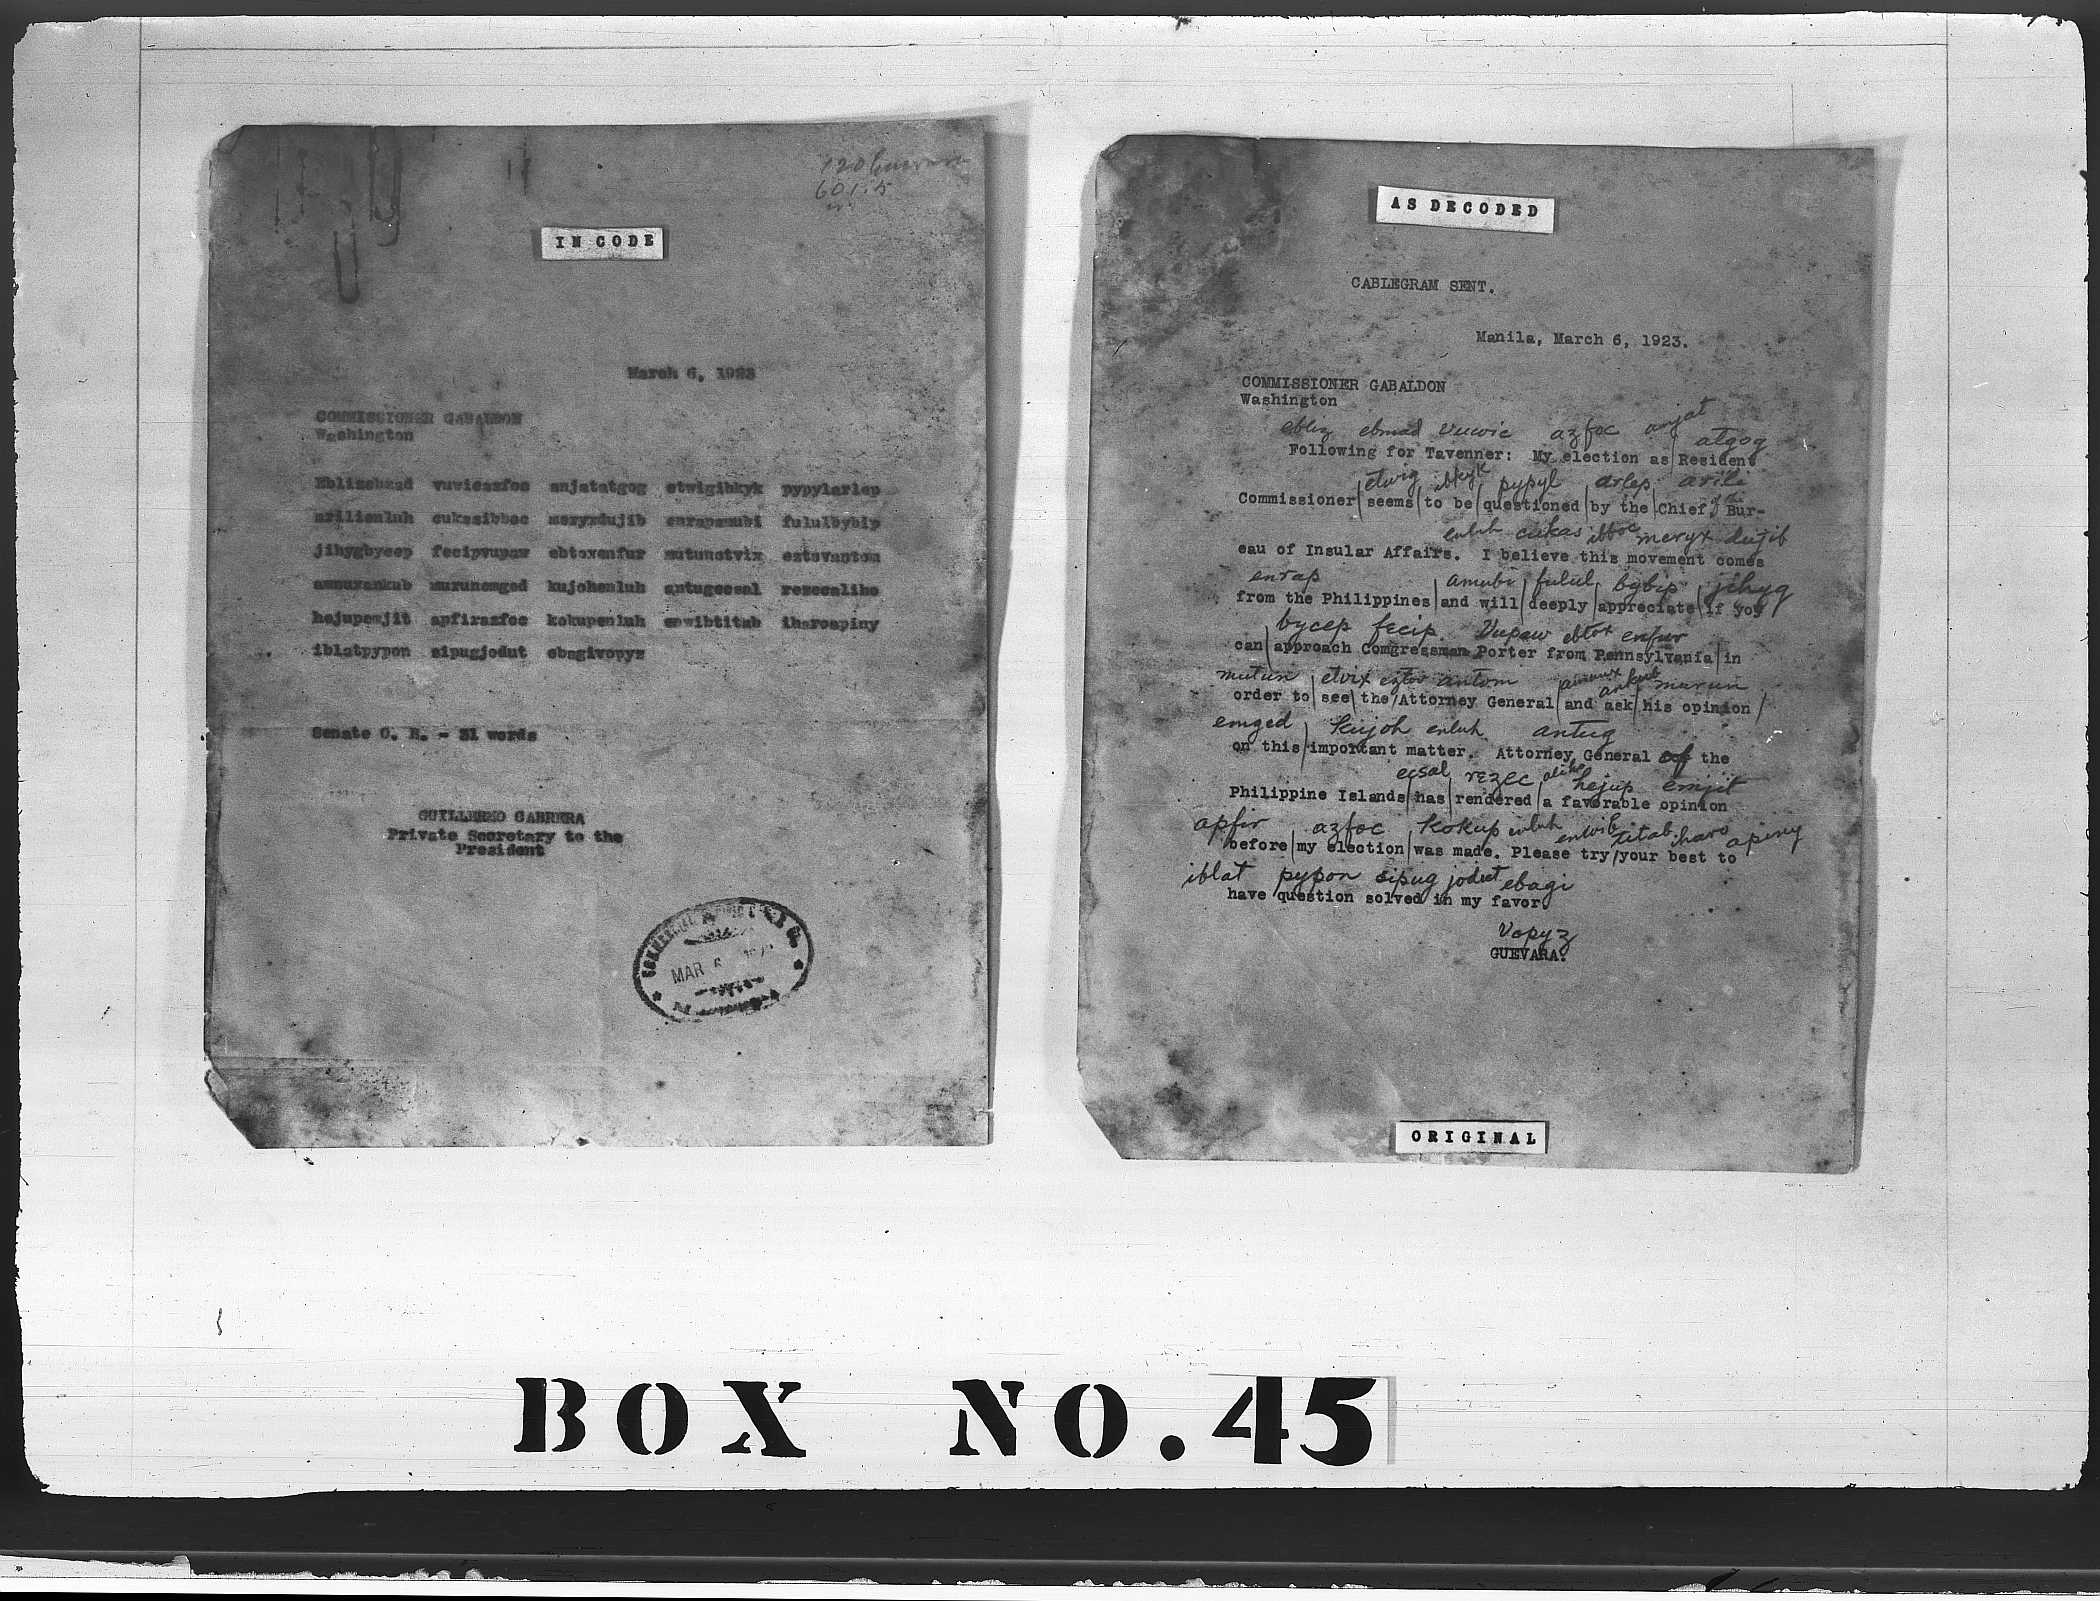 601.5
IN CODE
March 6, 1923
COMMISSIONER GABALDON
Washington
vuvicazfoc anjatatgog etwigibkyk pypylarlep
arilienluh cukasibboc meryxdujib enrapamubi fululbybip
jihygbycep fecipvupaw ebtoxenfur mutunetvix eztovantom
amuuxankub murunemged kujohenluh antugecsal rezecalike
hejupemjit apfirazfoc kokupenluh enwibtitab iharoapiny
iblatpypon sipugjodut ebagivopyz
Senate O. B. - 31 words
GUILLERMO CABRERA
Private Secretary to the
President
MAR 6
AS DECODED
CABLEGRAM SENT.
Manila, March 6, 1923.
COMMISSIONER GABALDON
Washington
vuvic azfoc anjat atgog
Following for Tavenner: My election as Resident
etwig ibkyk pypyl arlep arili
Commissioner seems to be questioned by the Chief of the Bur-
enluh cukas ibboc meryx dujib
eau of Insular Affairs. I believe this movement comes
enrap amubi fulul bybip jihyg
from the Philippines and will deeply appreciate if you
bycep fecip vupaw ebtox enfur
can approach Congressman Porter from Pennsylvania in
mutun etvix eztov antom amuux ankub murun
order to see the Attorney General and ask his opinion
emged kujoh enluh antug
on this important matter. Attorney General of the
ecsal rezec alike hejup emjit
Philippine Islands has rendered a favorable opinion
apfir azfoc kokup enluh enwib titab iharo apiny
before my election was made. Please try your best to
iblat pypon sipug jodut ebagi
have question solved in my favor.
vopyz
GUEVARA.
ORIGINAL
BOX NO. 45